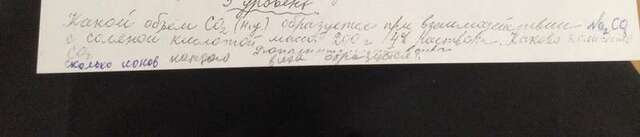 3 уровень
Какой объем CO₂ (н.у.) образуется при взаимодействии Na₂CO
с соляной кислотой массой 200г 14% раствора. Каково количество
CO₂
сколько ионов каждого вида образовалось?